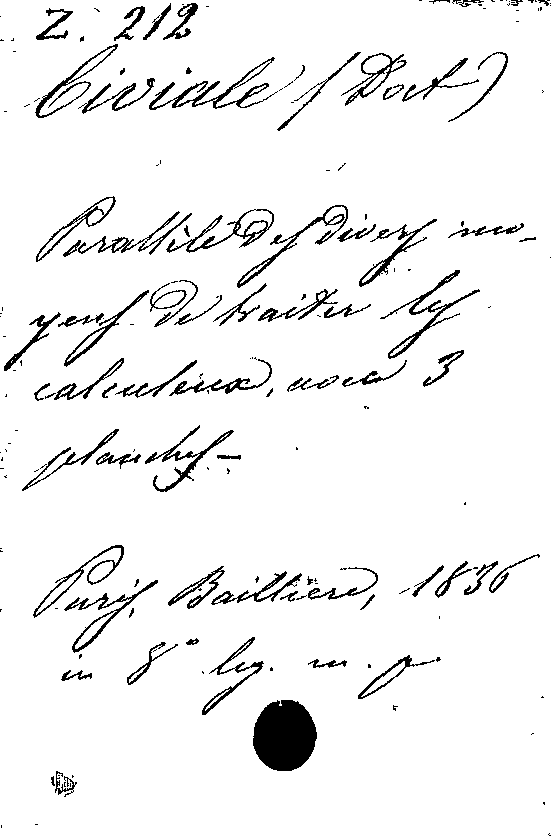 Z. 212
Civiale (Doct)
Parallèle des divers mo-
yens de traiter les
calculeux, avec 3
planches -
Paris, Baillière, 1836
in 8° leg. m. p.